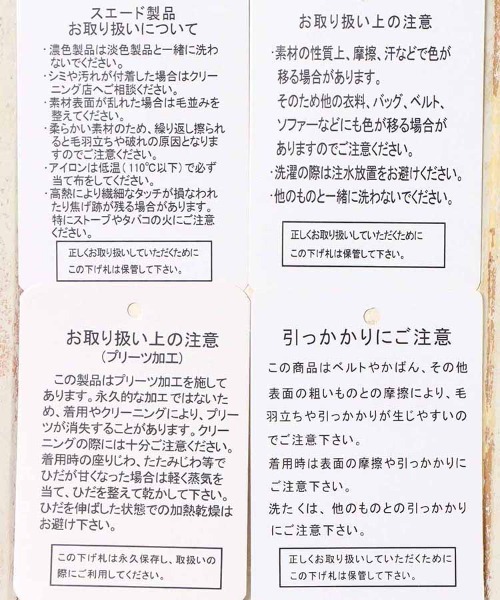 スエード製品
お取り扱いについて
・濃色製品は淡色製品と一緒に洗わ
ないでください。
・シミや汚れが付着した場合はクリー
ニング店へご相談ください。
・素材表面が乱れた場合は毛並みを
整えてください。
・柔らかい素材のため、繰り返し擦られ
ると毛羽立ちや破れの原因となりま
すのでご注意ください。
・アイロンは低温(110℃以下)で必ず
当て布をしてください。
・高熱により繊細なタッチが損なわれ
たり焦げ跡が残る場合があります。
特にストーブやタバコの火にご注意
ください。
正しくお取り扱いしていただくために
この下げ札は保管して下さい。
お取り扱い上の注意
・素材の性質上、摩擦、汗などで色が
移る場合があります。
そのため他の衣料、バッグ、ベルト、
ソファーなどにも色が移る場合が
ありますのでご注意ください。
・洗濯の際は注水放置をお避けください。
・他のものと一緒に洗わないでください。
正しくお取り扱いしていただくために
この下げ札は保管して下さい。
お取り扱い上の注意
(プリーツ加工)
この製品はプリーツ加工を施して
あります。永久的な加工ではないた
め、着用やクリーニングにより、プリー
ツが消失することがあります。クリー
ニングの際には十分ご注意ください。
着用時の座りじわ、たたみじわ等で
ひだが甘くなった場合は軽く蒸気を
当て、ひだを整えて乾かして下さい。
ひだを伸ばした状態での加熱乾燥は
お避け下さい。
この下げ札は永久保存し、取扱いの
際にご利用してください。
引っかかりにご注意
この商品はベルトやかばん、その他
表面の粗いものとの摩擦により、毛
羽立ちや引っかかりが生じやすいの
でご注意下さい。
着用時は表面の摩擦や引っかかりに
ご注意下さい。
洗たくは、他のものとの引っかかり
にご注意下さい。
正しくお取り扱いしていただくために
この下げ札は保管して下さい。